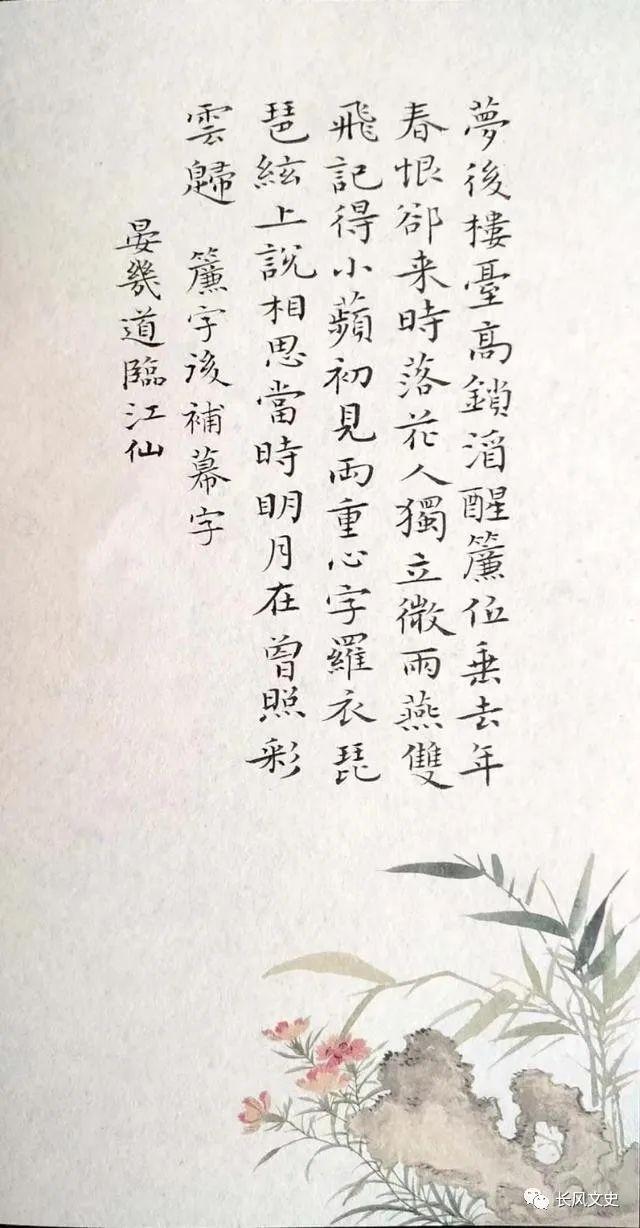 夢後樓臺高鎖酒醒簾低垂去年
春恨卻来時落花人獨立微雨燕雙
飛記得小蘋初見両重心字羅衣琵
琶絃上說相思當時明月在曾照彩
雲歸 簾字後補幕字
晏幾道臨江仙
长风文史